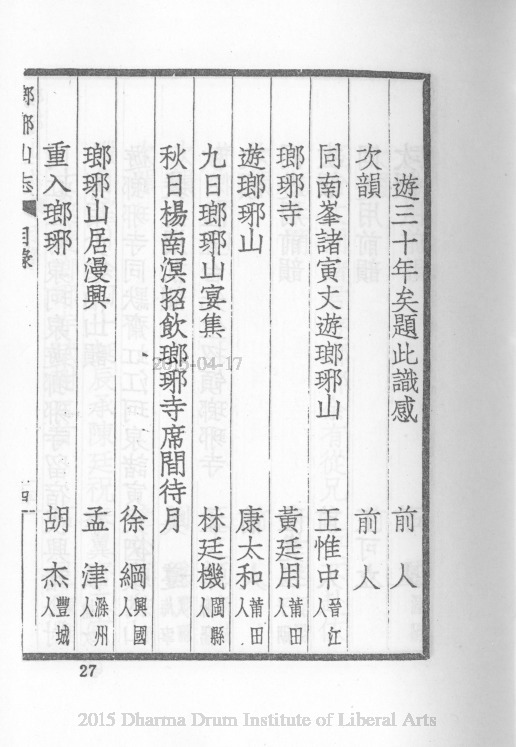 遊三十年矣題此識感 前人
次韻 前人
同南峯諸寅丈遊瑯琊山 王惟中晉江人
瑯琊寺 黃廷用莆田人
遊瑯琊山 康太和莆田人
九日瑯琊山宴集 林廷機閩縣人
秋日楊南溟招飲瑯琊寺席間待月
徐綱興國人
瑯琊山居漫興 孟津滁州人
重入瑯琊 胡杰豐城人
瑯琊山志 目錄 十四
27
2015-04-17
2015 Dharma Drum Institute of Liberal Arts